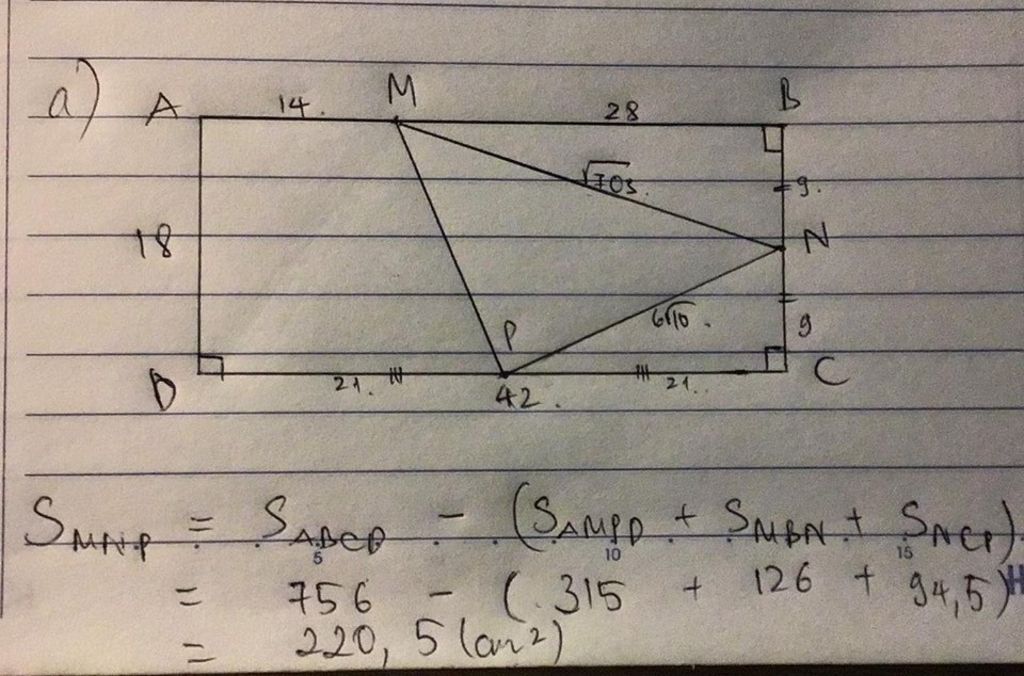 a)
A 14. M 28 B
√703.
9.
18
N
6√10.
P
9
D 21. 42. 21. C
S_MNP = S_ABCD - (S_AMPD + S_MBN + S_NCP)
5 10 15
= 756 - (.315 + 126 + 94,5)
= 220,5 (cm²)